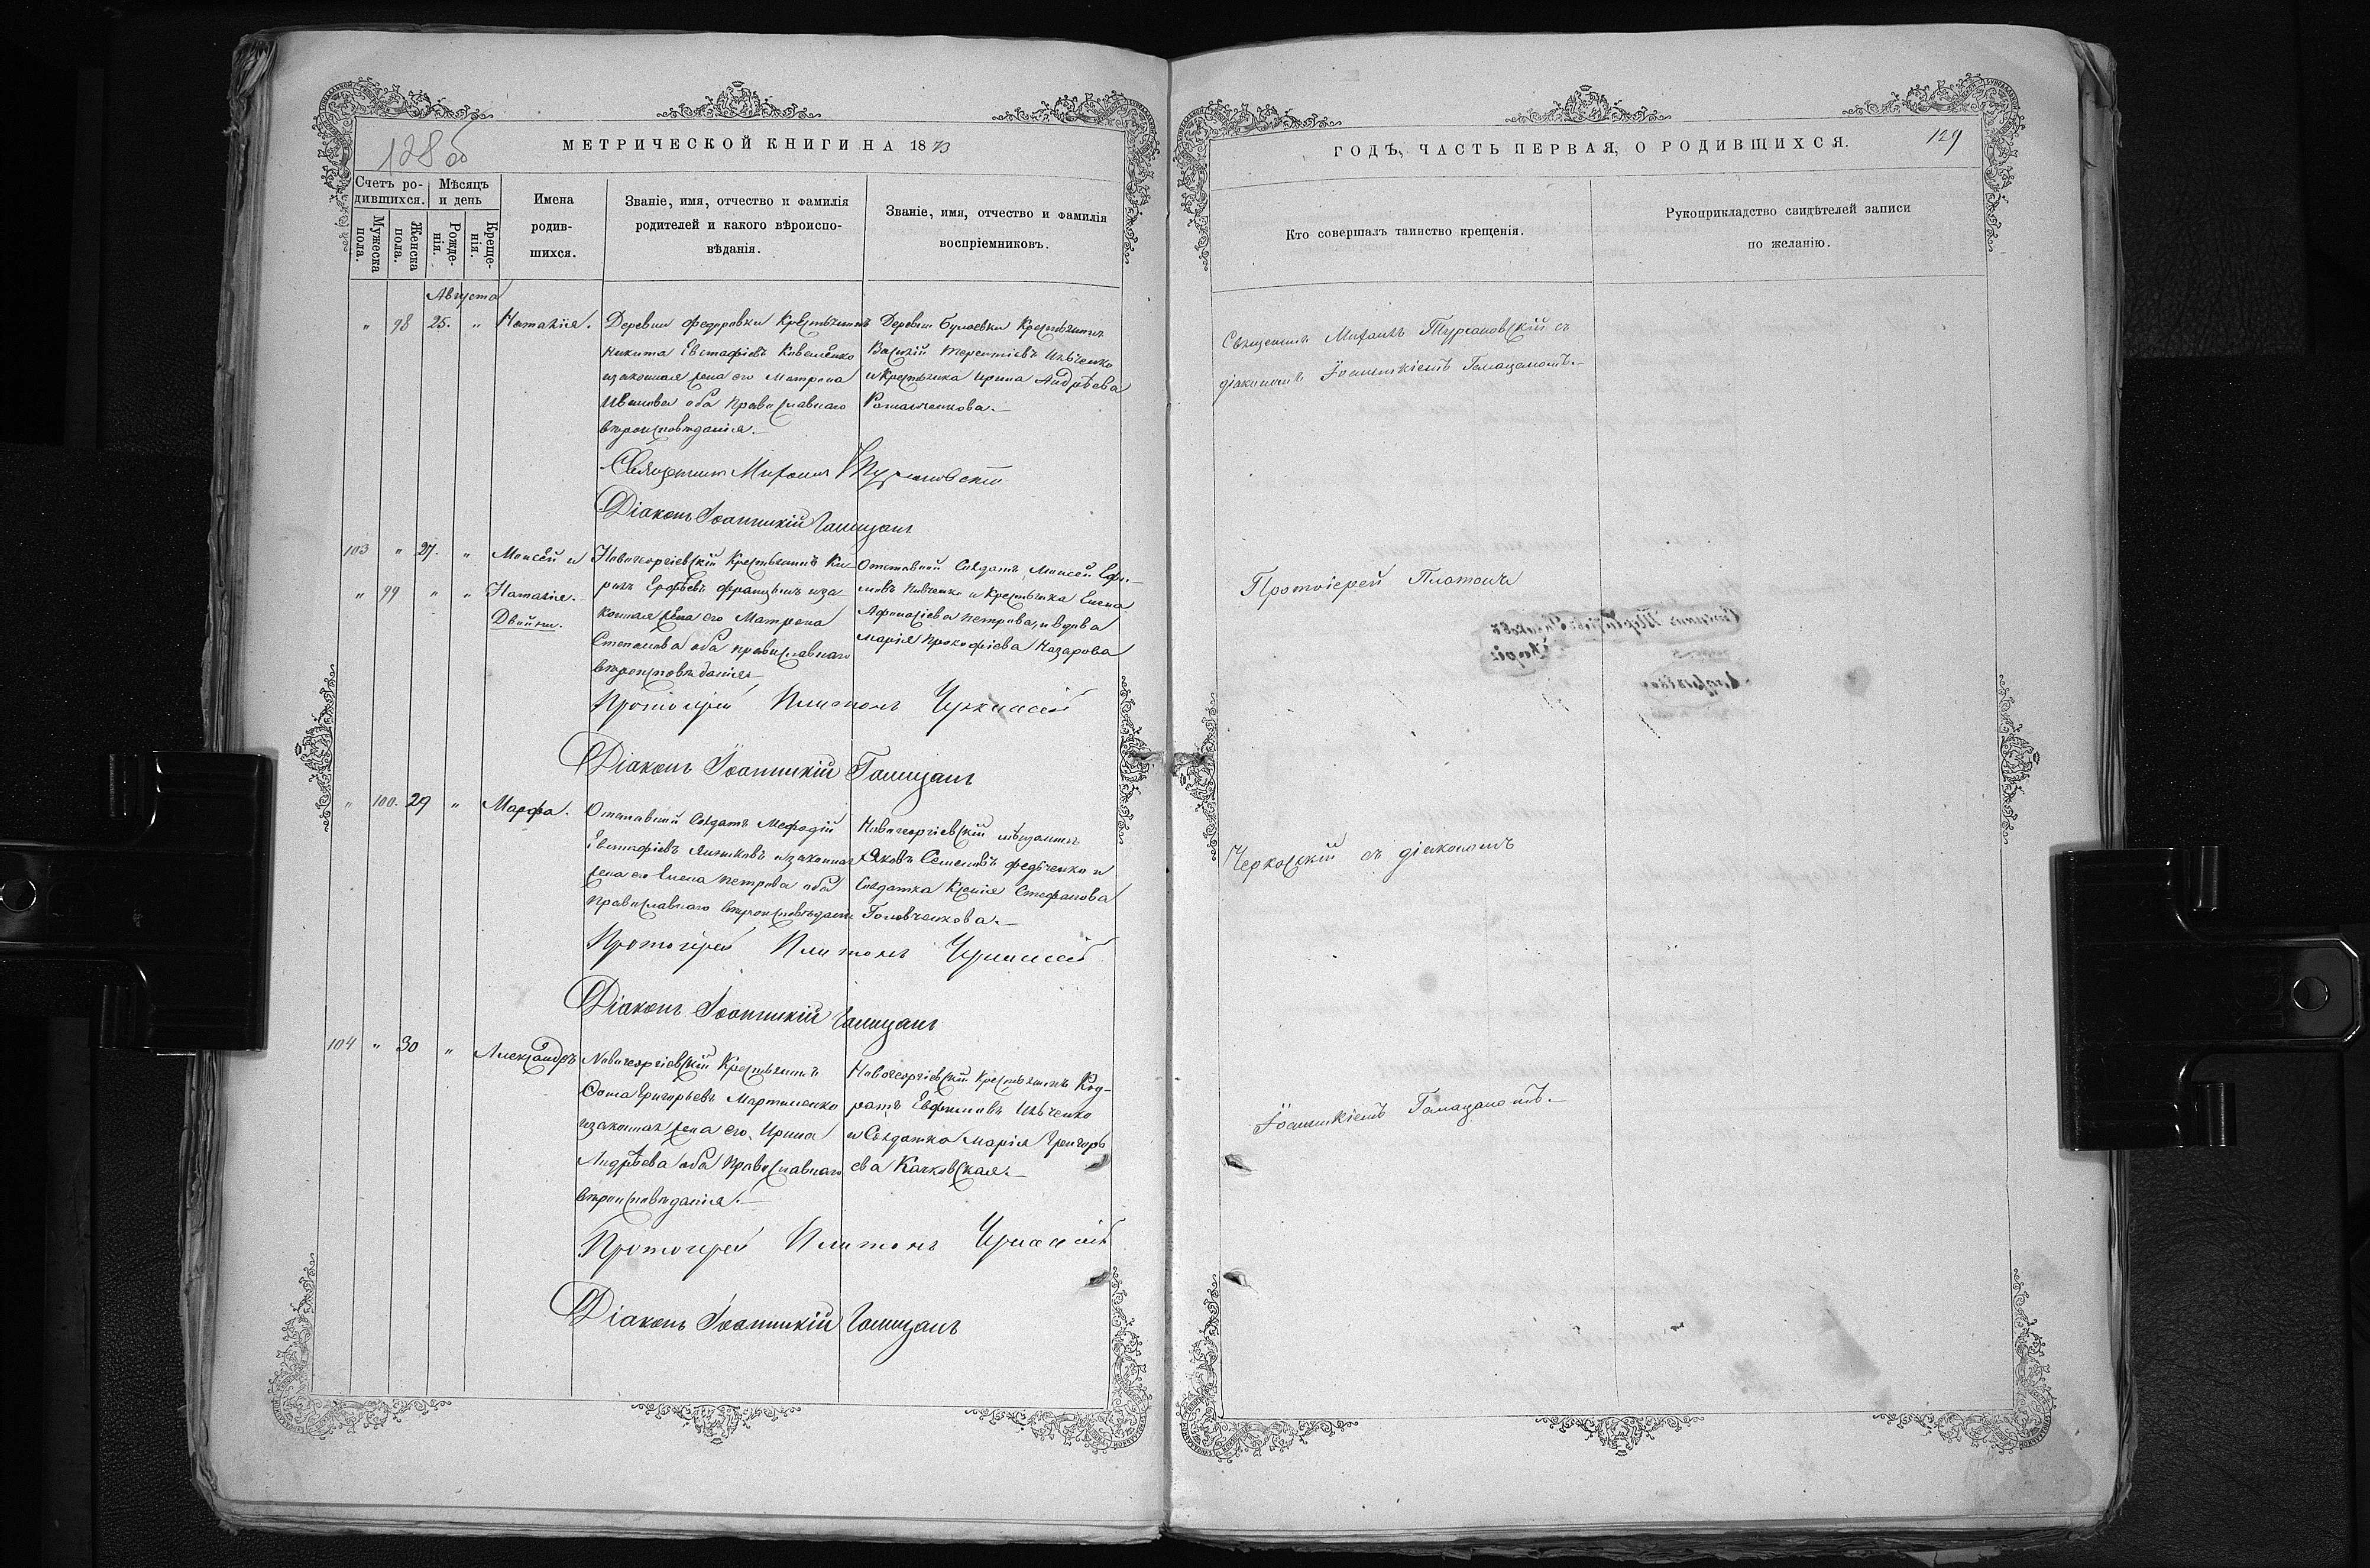 128 об
МЕТРИЧЕСКОЙ КНИГИ НА 1873
Счетъ ро-
дившихся.
Мѣсяцъ
и день
Мужеска
пола.
Женска
пола.
Рожде-
нія.
Креще-
нія.
Имена
родив-
шихся.
Званіе, имя, отчество и фамилія
родителей и какого вѣроиспо-
вѣданія.
Званіе, имя, отчество и фамилія
воспріемниковъ.
Августа
" 98 25. " Наталія.
Деревни Федоровки Крестьянинъ
Никита Евстафіевъ
и законная жена его Матрона
Иванова оба православнаго
вѣроисповѣданія.
Деревни Крестьянинъ
Василій Терентіевъ Ильченко
и Крестьянка Ирина Андрѣева
Романченкова.
Священникъ Михаилъ Турановскій
Діаконъ Іоанникій Гамицанъ
103 " 27. " Моисей и
" 99 " " Наталія.
Двойни.
Новогеоргіевскій Крестьянинъ Ки-
рилъ Ерофѣевъ и за-
конная жена его Матрона
Степанова оба православнаго
вѣроисповѣданія
Отставной Солдатъ Моисей Ефи-
мовъ и Крестьянка Елена
Афанасіева Петрова, и вдова
Марія Прокофіева Назарова
Протоіерей Платонъ Черкасскій
Діаконъ Іоанникій Гамицанъ
" 100. 29 " Марфа.
Отставной Солдатъ Мефодій
Евстафіевъ и законная
жена его Елена Петрова оба
православнаго вѣроисповѣданія
Новогеоргіевскій мѣщанинъ
Яковъ Семеновъ Федченко и
Солдатка Ксенія Стефанова
Головченкова.
Протоіерей Платонъ Черкасскій
Діаконъ Іоанникій Гамицанъ
104 " 30 " Александръ
Новогеоргіевскій Крестьянинъ
Фома Григорьевъ Мартыненко
и законная жена его Ирина
Андрѣева оба православнаго
вѣроисповѣданія.
Новогеоргіевскій Крестьянинъ Код-
ратъ Евфимовъ Ильченко
и Солдатка Марія Григорь
ева Качковская.
Протоіерей Платонъ Черкасскій
Діаконъ Іоанникій Гамицанъ
ГОДЪ, ЧАСТЬ ПЕРВАЯ, О РОДИВШИХСЯ.
129
Кто совершалъ таинство крещенія.
Рукоприкладство свидѣтелей записи
по желанію.
Священникъ Михаилъ Турановскій съ
діакономъ Іоанникіемъ
Протоіерей Платонъ
Черкасскій съ діакономъ
Іоанникіемъ